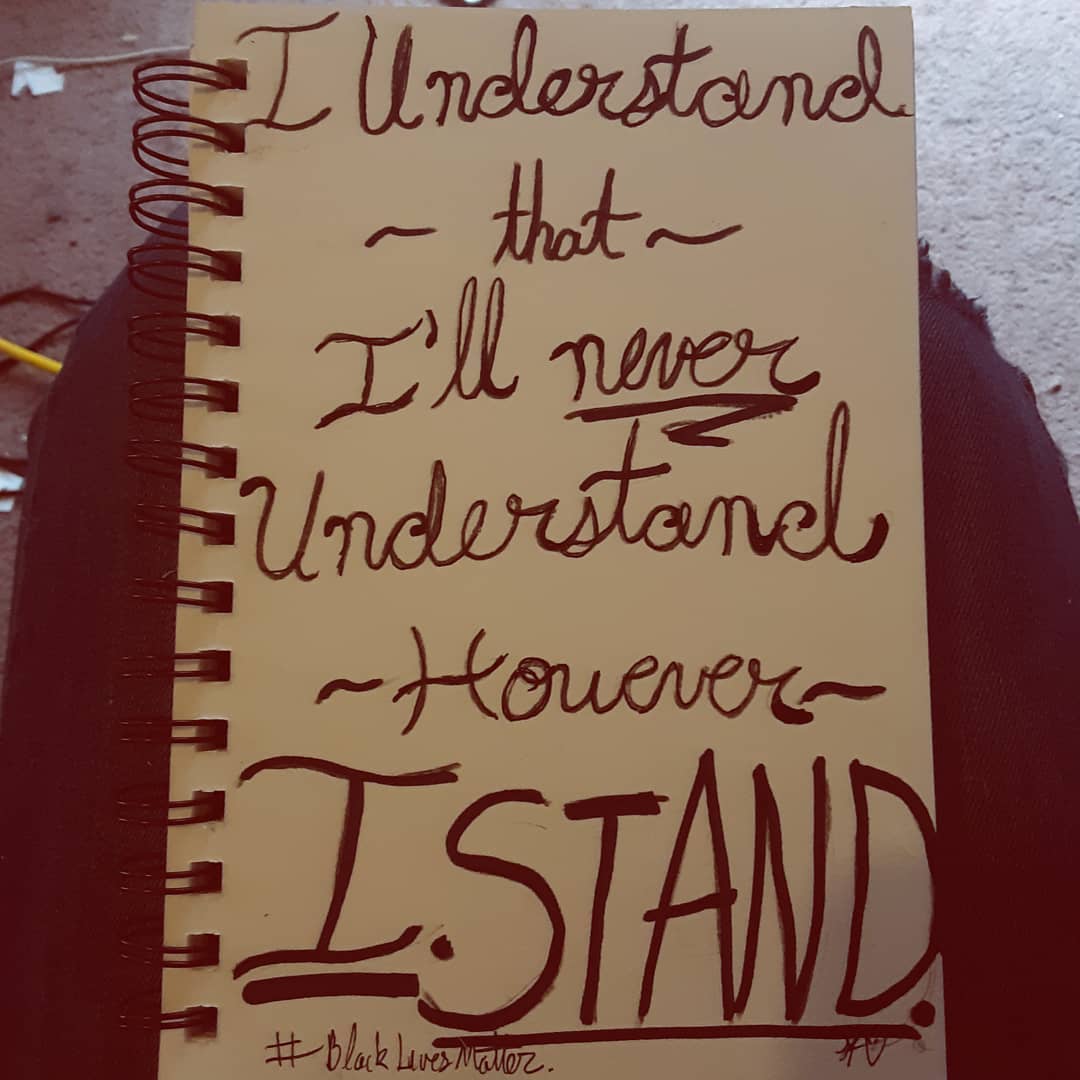 I Understand
~ that ~
I'll never
Understand
~ However ~
I. STAND.
# BlackLivesMatter.